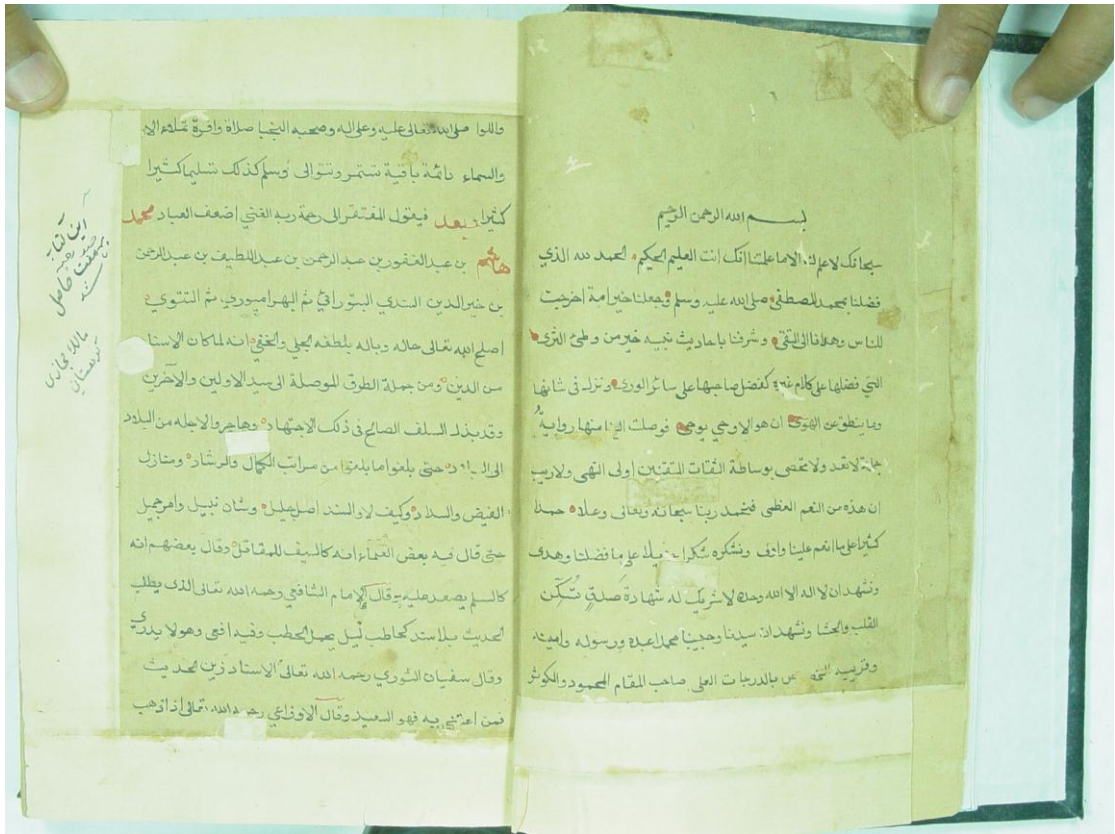 بسم الله الرحمن الرحيم
سبحانك لا علم لنا الا ما علمتنا انك انت العليم الحكيم الحمد لله الذي
فضلنا بمحمد المصطفى صلى الله عليه وسلم وجعلنا خير امة اخرجت
للناس وهدانا الى التقى وشرفنا باحاديث نبيه خير من وطئ الثرى
التي فضلها على كلام غيره كفضل صاحبها على سائر الورى ونزل في شانها
وما ينطق عن الهوى ان هو الا وحي يوحى فوصلت الينا منها رواية
جملة لا تعد ولا تحصى بوساطة الثقات المتقنين اولى النهى ولا ريب
ان هذه من النعم العظمى فنحمد ربنا سبحانه وتعالى وعلا حمدا
كثيرا على ما انعم علينا واوفى ونشكره شكرا جزيلا على ما فضلنا وهدى
ونشهد ان لا اله الا الله وحده لا شريك له شهادة صدق تسكن
القلب والحشا ونشهد ان سيدنا وحبيبنا محمدا عبده ورسوله وامينه
وقريبه بالدرجات العلى صاحب المقام المحمود والكوثر
واللوا صلى الله تعالى عليه وعلى اله وصحبه النجبا صلاة وافرة تملاء الا
والسماء دائمة باقية تستمر وتتوالى وسلم كذلك تسليما كثيرا
كثيرا وبعد فيقول المفتقر الى رحمة ربه الغني اضعف العباد محمد
هاشم بن عبد الغفور بن عبد الرحمن بن عبد اللطيف بن عبد الرحمن
بن خير الدين السندي البتورائي ثم البهرامبوري ثم التتوي
اصلح الله تعالى حاله وباله بلطفه الجلي والخفي انه لما كان الاسنا
من الدين ومن جملة الطرق الموصلة الى سيد الاولين والآخرين
وقد بذل السلف الصالح في ذلك الاجتهاد وهاجروا لاجله من البلاد
الى البلاد حتى بلغوا ما بلغوا من مراتب الكمال والرشاد ومنازل
الفيض والسداد وكيف لا والسند اصل جليل وشان نبيل وامر جميل
حتى قال فيه بعض العلماء انه كالسيف للمقاتل وقال بعضهم انه
كالسلم يصعد عليه وقال الامام الشافعي رحمه الله تعالى الذي يطلب
الحديث بلا سند كحاطب ليل يحمل الحطب وفيه افعى وهو لا يدري
وقال سفيان الثوري رحمه الله تعالى الاسناد زين الحديث
فمن اعتنى به فهو السعيد وقال الاوزاعي رحمه الله تعالى اذا ذهب
اين كتاب